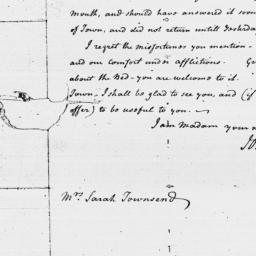 mouth, and should have answered it soon
of Town, and did not return until Yesterda
I regret the misfortunes you mention -
and our comfort under afflictions. G
about the Bed - you are welcome to it.
Town - I shall be glad to see you, and (if
offer) to be useful to you. -
I am Madam your
Mrs. Sarah Townsend